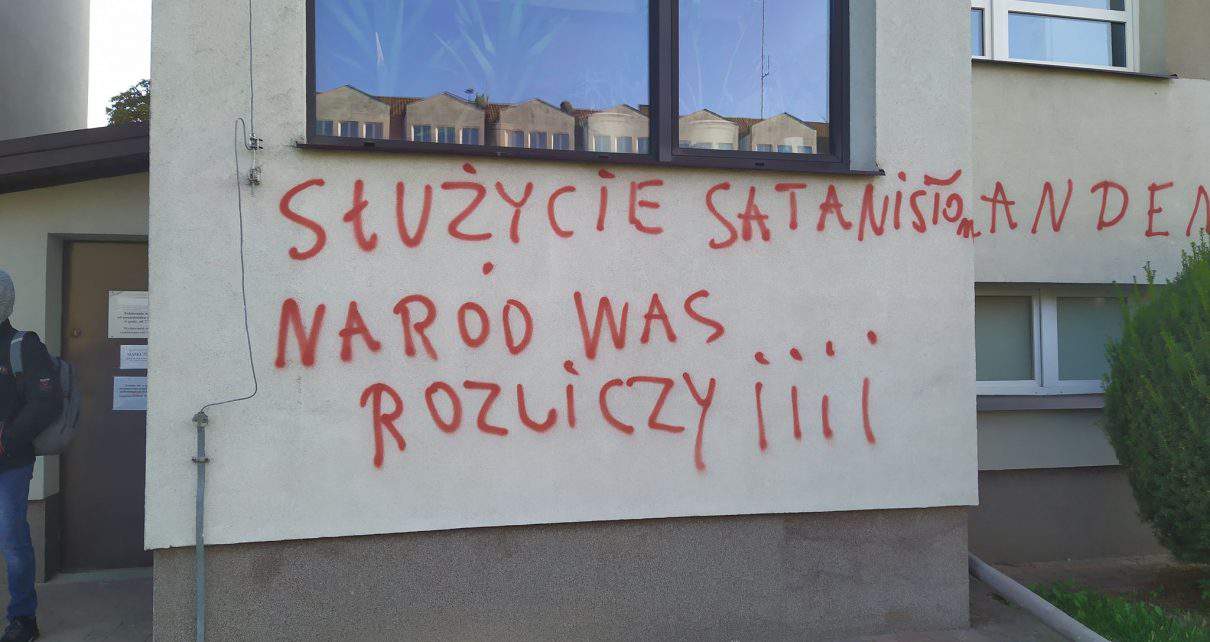 SŁUŻYCIE SATANISTOM
NARÓD WAS
ROZLICZY ¡¡¡¡